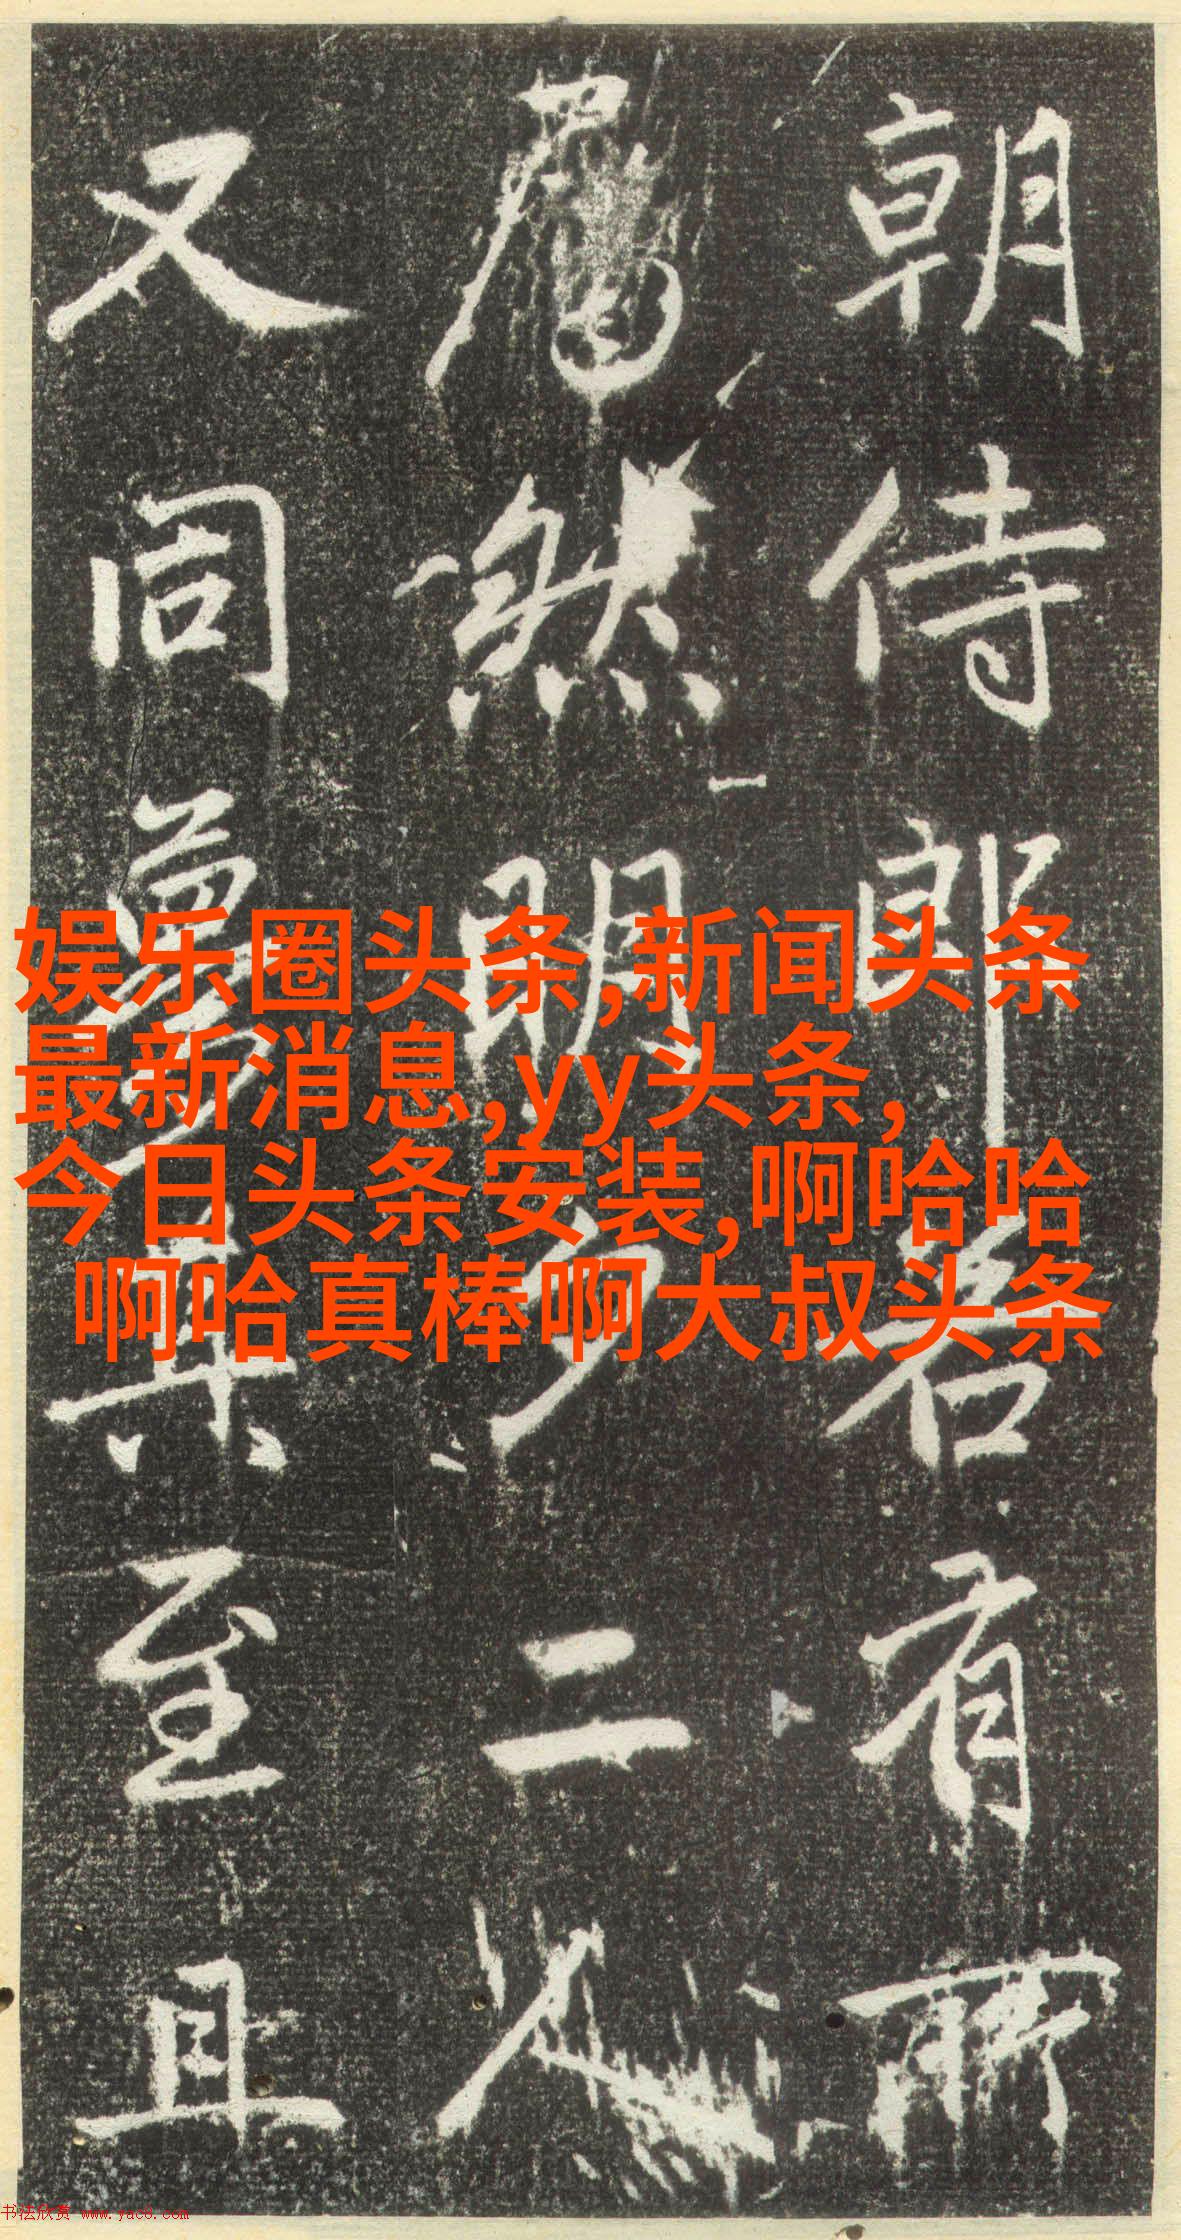 朝侍郎若有所
然明夕二人
又同夢其至且
娱乐圈头条,新闻头条
最新消息,yy头条,
今日头条安装,啊哈哈
啊哈真棒啊大叔头条
书法欣赏 www.yac8.com